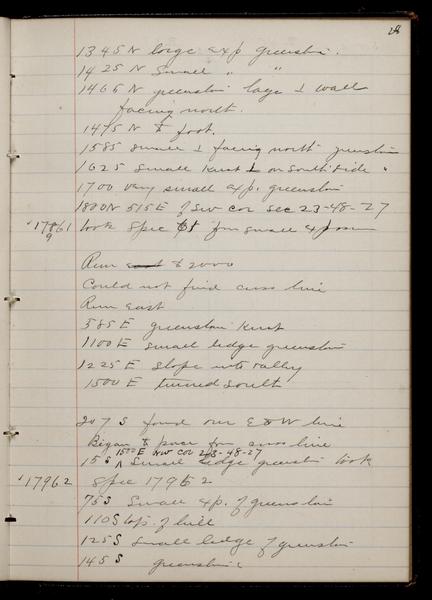 28
1345 N large exp greenston.
1425 N Small " "
1465 N greenston large ⊥ wall
facing north.
1475 N to foot.
1585 smaller ⊥ facing north greenston
1625 small knob ⊥ on South side "
1700 very small exp. greenston
1800 N 515 E of SW cor sec 23-48-27
17961 took spec from small exposure
Run to 2000
Could not find cross line
Run east
585 E greenston knob
1100 E small ledge greenston
1225 E slope into valley
1500 E turned South
207 S found our E & W line
Began to pace from cross line
1500 E NW cor 23-48-27
15 S small ledge greenston took
17962 Spec 17962
75 S Small exp. of greenston
110 S top of hill
125 S small ledge of greenston
145 S greenston